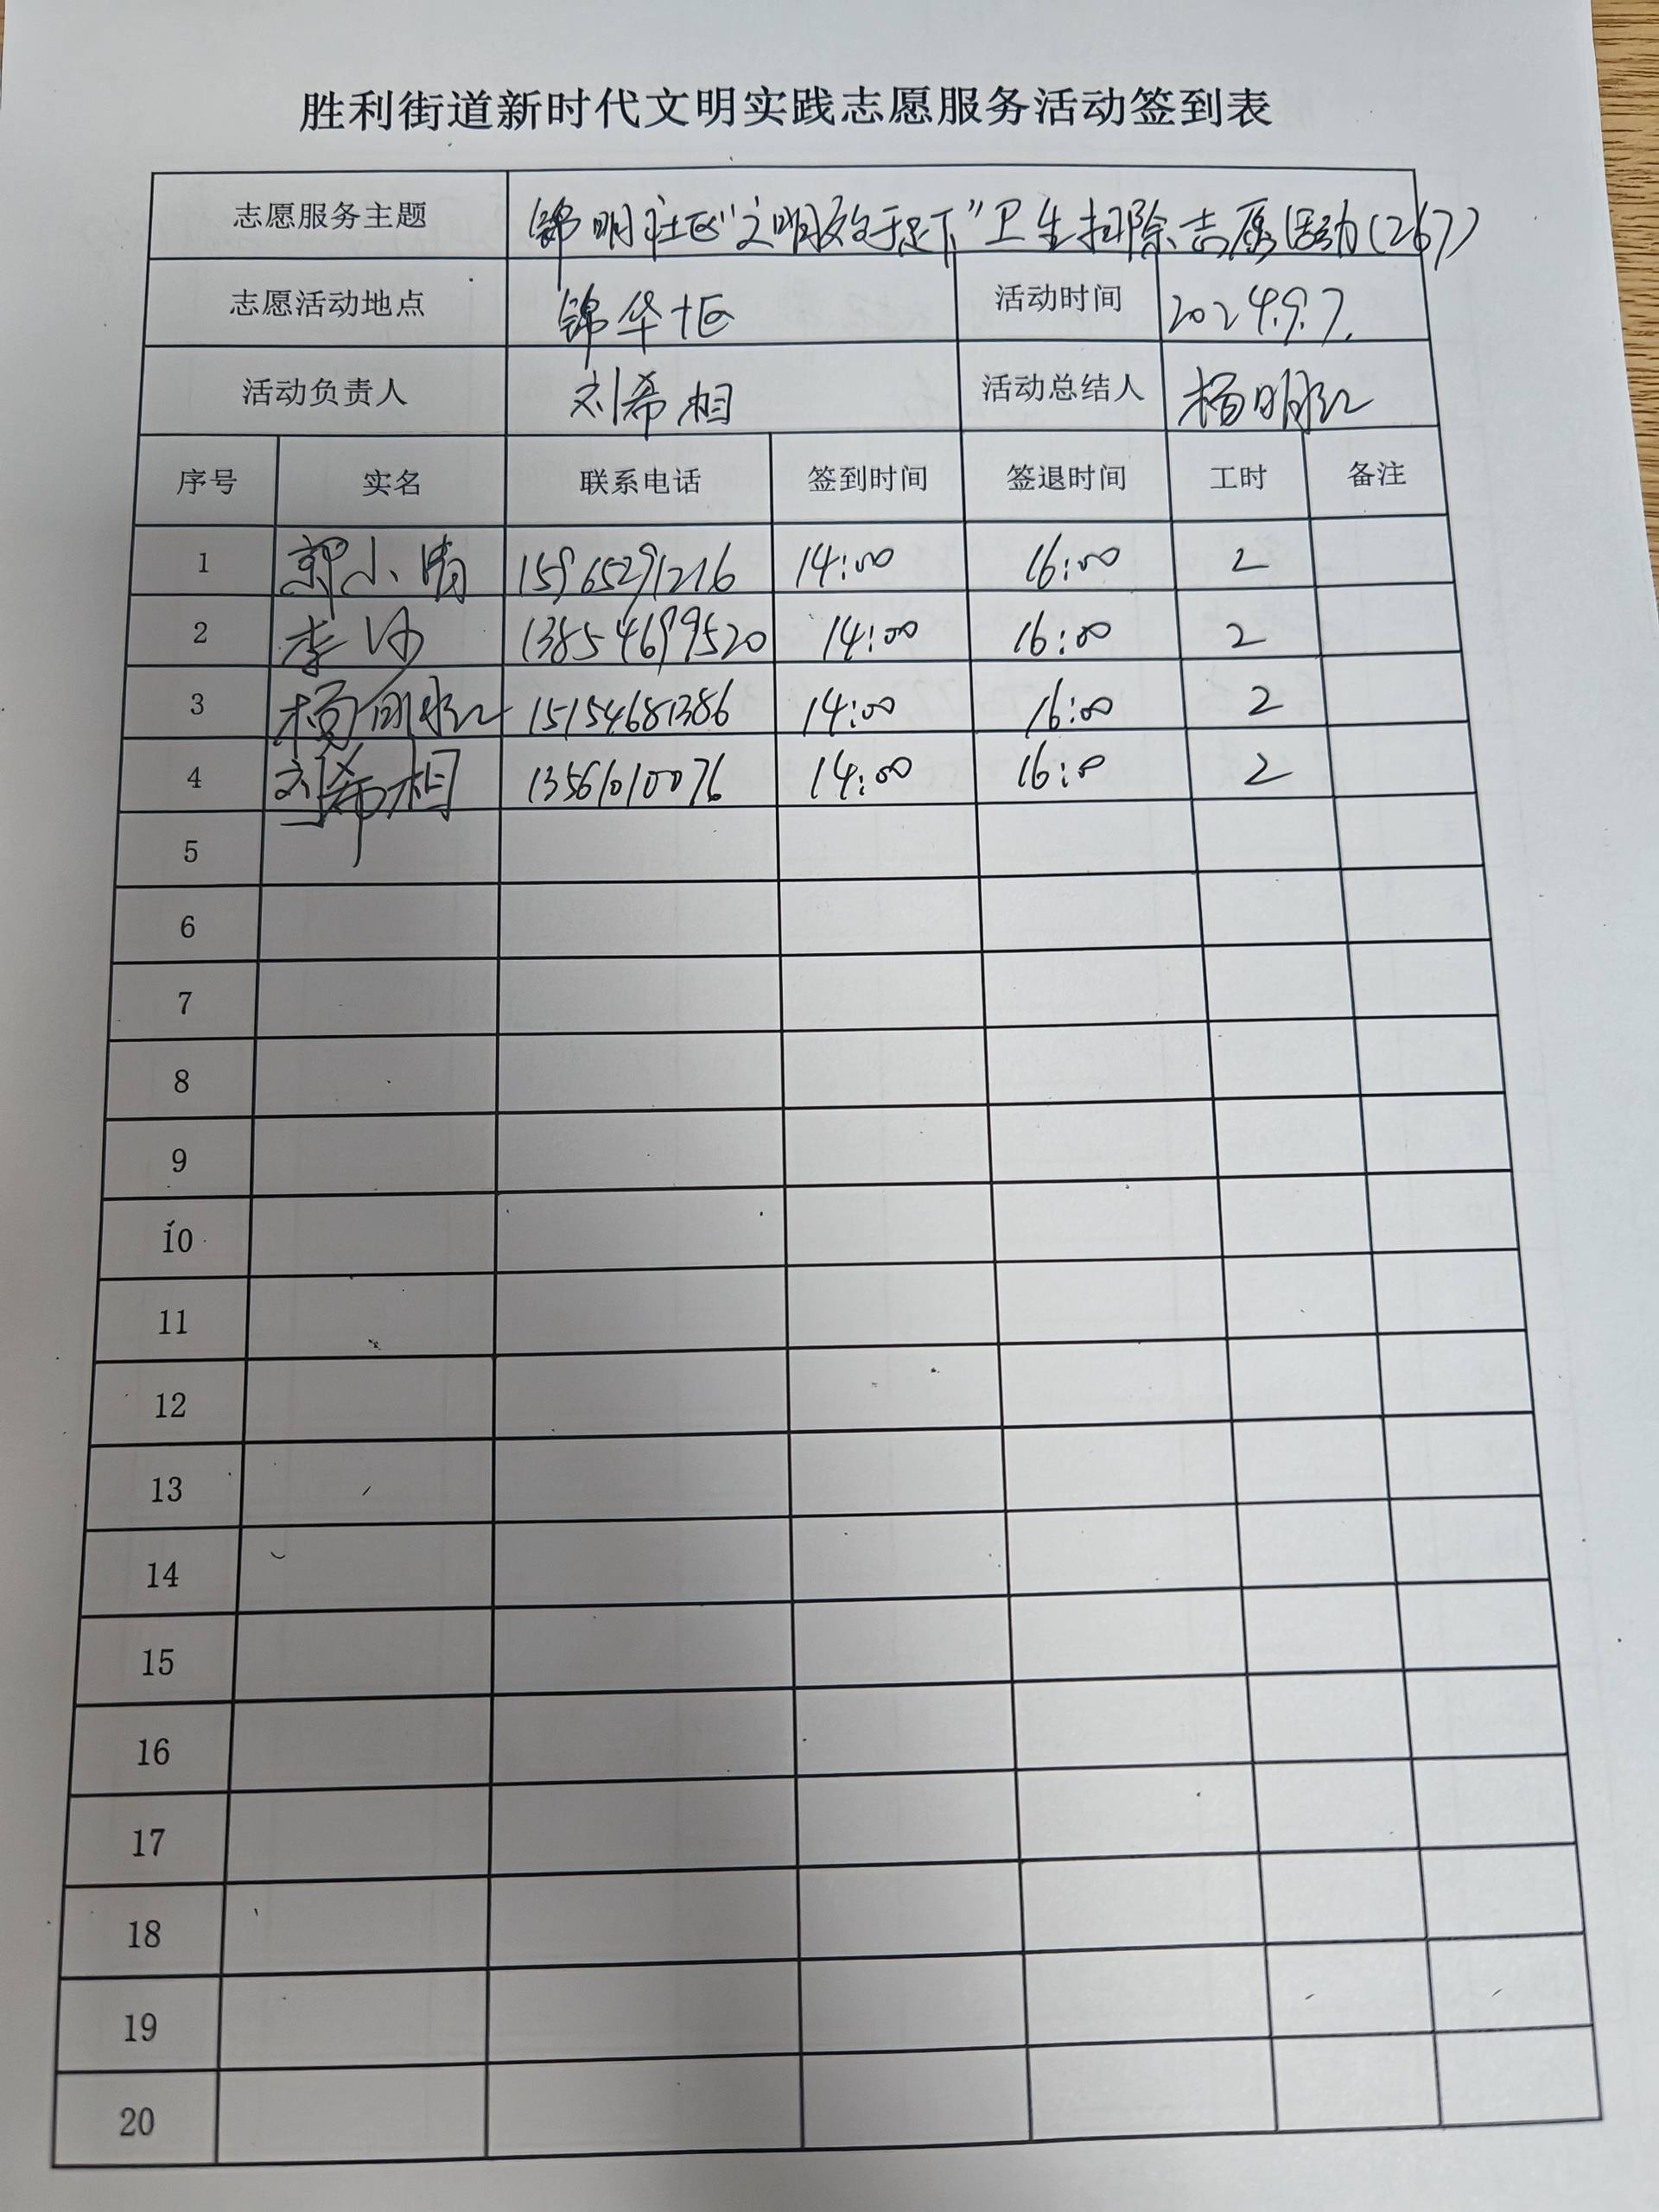 胜利街道新时代文明实践志愿服务活动签到表
志愿服务主题 锦明社区"文明始于足下"卫生扫除志愿活动(267)
志愿活动地点 锦华十区 活动时间 2024.9.7.
活动负责人 刘希相 活动总结人 杨明红
序号 实名 联系电话 签到时间 签退时间 工时 备注
1 郭小清 15965291216 14:00 16:00 2
2 李 13854699520 14:00 16:00 2
3 杨明红 15154681386 14:00 16:00 2
4 刘希相 13561010076 14:00 16:0 2
5
6
7
8
9
10
11
12
13
14
15
16
17
18
19
20